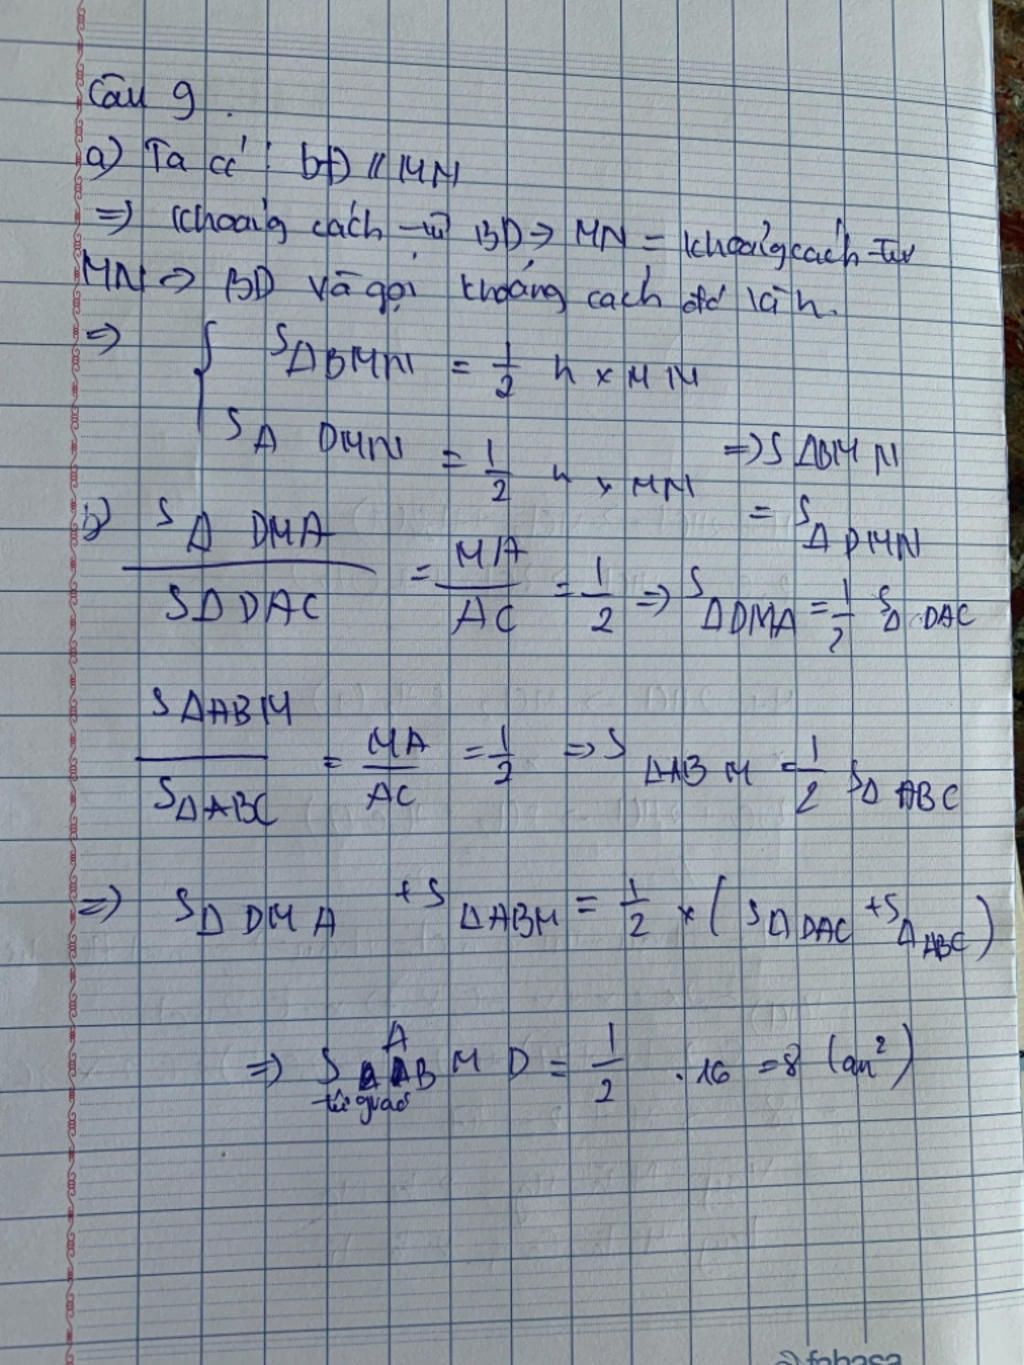 Câu 9.
a) Ta có: BD // MN
=> Khoảng cách từ BD -> MN = khoảng cách từ
MN -> BD và gọi khoảng cách đó là h.
=> { SΔBMN = 1/2 h x MN
SΔ DMN = 1/2 h x MN => SΔBMN
= SΔDMN
b) SΔ DMA / SΔDAC = MA/AC = 1/2 => SΔDMA = 1/2 SΔDAC
SΔABM / SΔABC = MA/AC = 1/2 => SΔABM = 1/2 SΔABC
=> SΔDMA + SΔABM = 1/2 x (SΔDAC + SΔABC)
=> S tứ giác ABMD = 1/2 . 16 = 8 (cm²)
fahasa